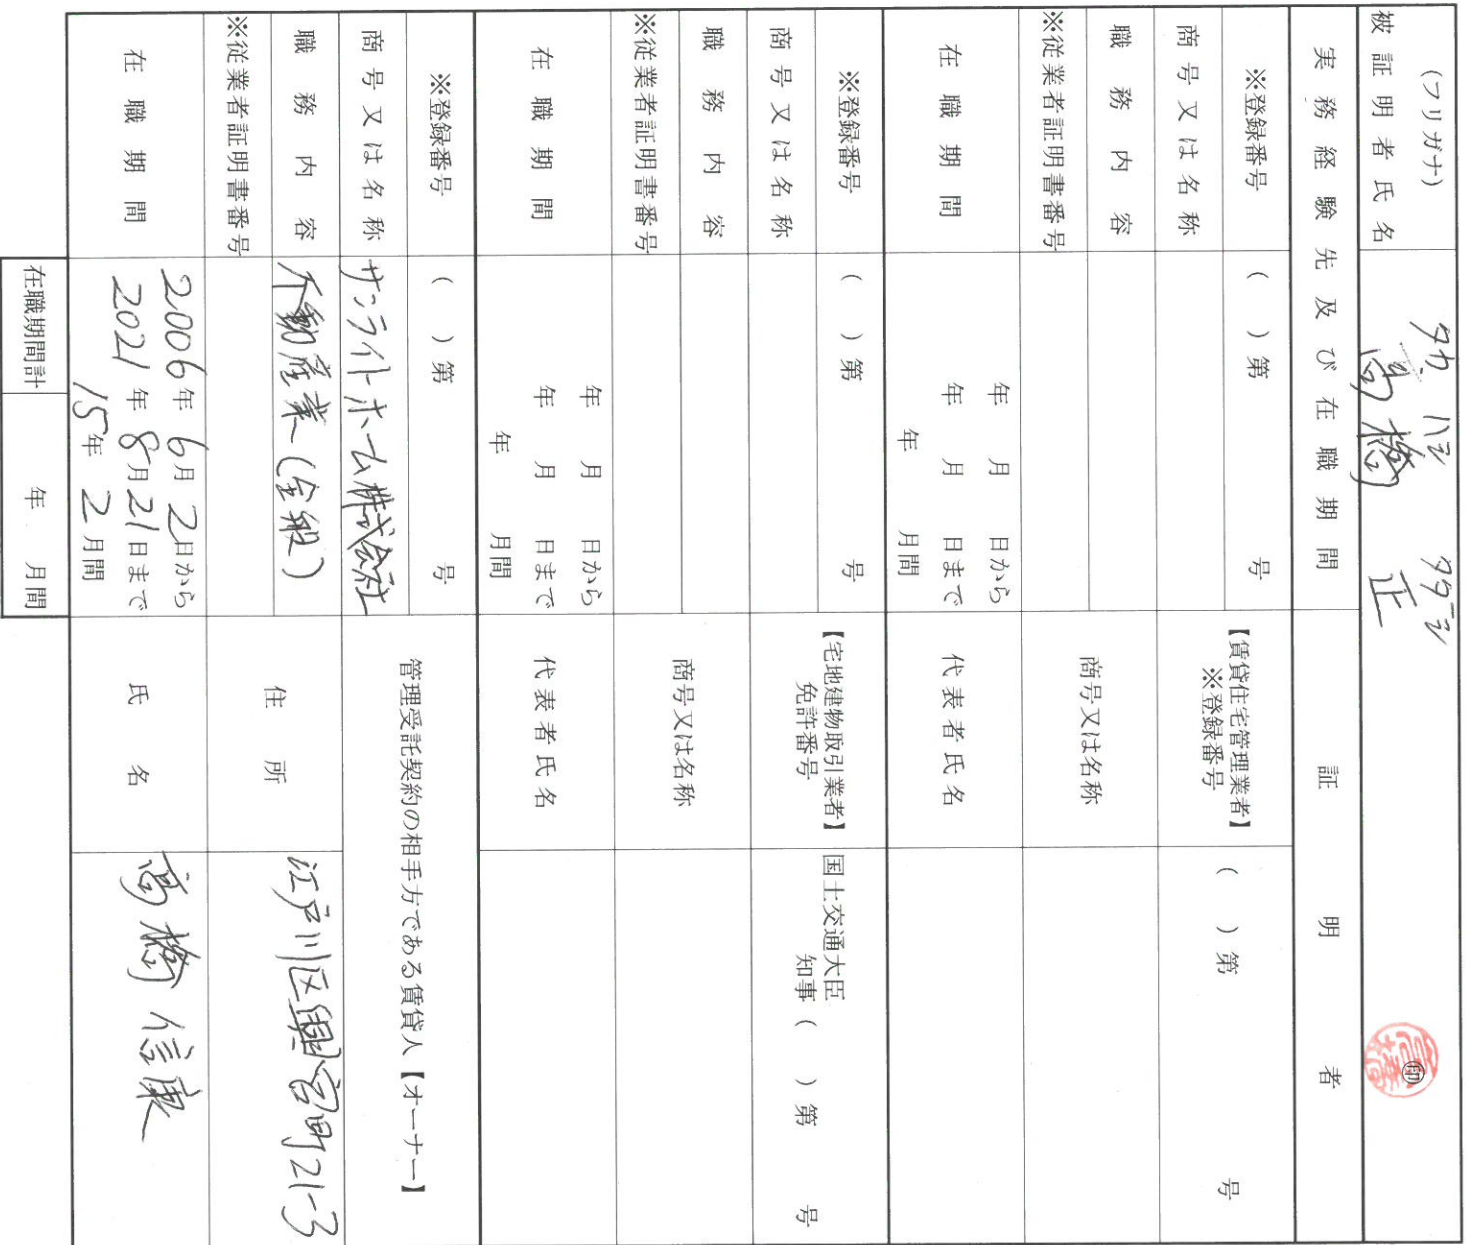 (フリガナ) タカハシ タダシ
被証明者氏名 高橋 正 ㊞
実務経験先及び在職期間 証明者
※登録番号 ( )第 号 【賃貸住宅管理業者】
※登録番号 ( )第 号
商号又は名称
職務内容 商号又は名称
※従業者証明書番号
在職期間 年 月 日から 代表者氏名
年 月 日まで
年 月間
※登録番号 ( )第 号 【宅地建物取引業者】
免許番号 国土交通大臣
知事 ( )第 号
商号又は名称
職務内容 商号又は名称
※従業者証明書番号
在職期間 年 月 日から 代表者氏名
年 月 日まで
年 月間
※登録番号 ( )第 号 管理受託契約の相手方である賃貸人【オーナー】
商号又は名称 サンライトホーム株式会社
職務内容 不動産業(全般) 住所 江戸川区興宮町21-3
※従業者証明書番号
在職期間 2006年6月2日から 氏名 高橋信康
2021年8月21日まで
15年2月間
在職期間計 年 月間